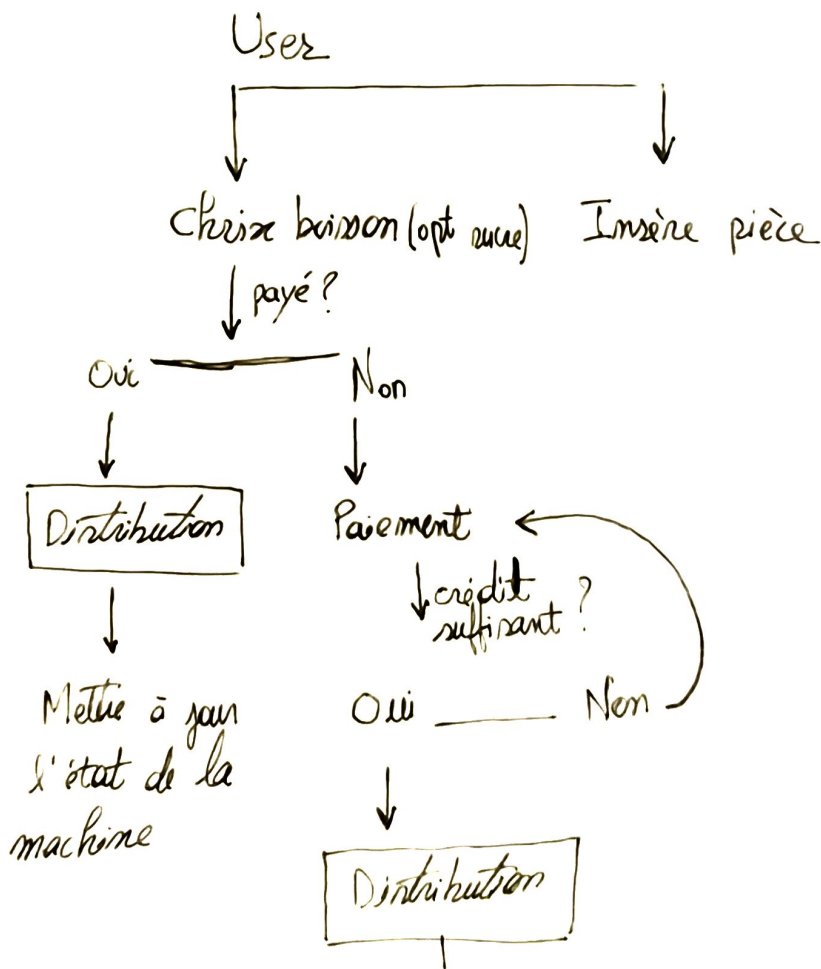 User
Choix boisson (opt sucre) Insère pièce
payé ?
Oui Non
Distribution Paiement
crédit
suffisant ?
Mettre à jour Oui Non
l'état de la
machine
Distribution